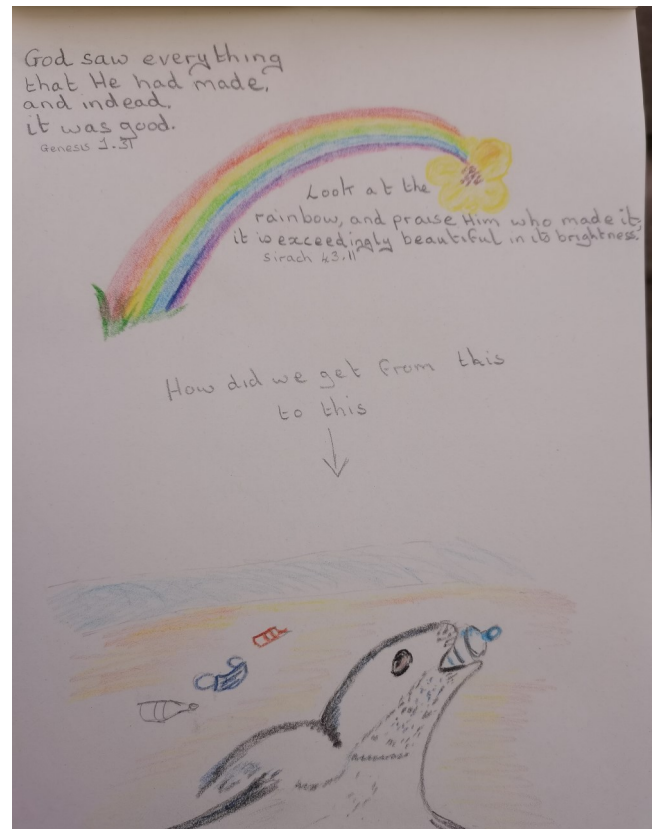 God saw everything
that He had made,
and indead,
it was good.
Genesis 1.31
Look at the
rainbow, and praise Him who made it,
it is exceedingly beautiful in its brightness.
Sirach 43.11
How did we get from this
to this